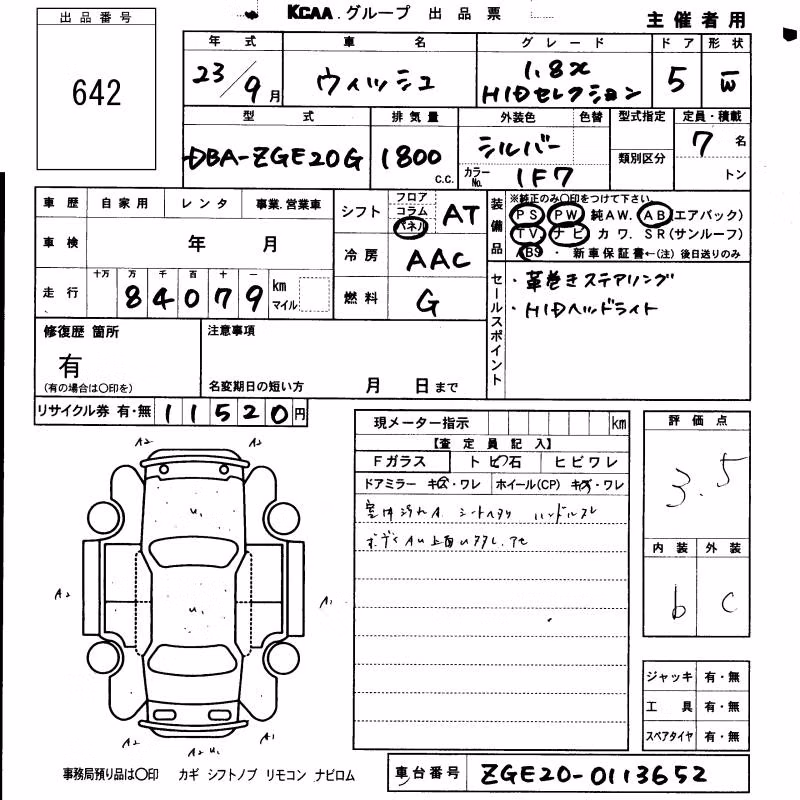 出品番号
642
KCAA グループ 出品票
主催者用
年式 車名 グレード ドア 形状
23/9月 ウィッシュ 1.8X HIDセレクション 5 W
型式 排気量 外装色 色替 型式指定 定員・積載
DBA-ZGE20G 1800 c.c. シルバー 類別区分 7名
カラーNo. 1F7 トン
車歴 自家用 レンタ 事業.営業車
車検 年 月
走行 十万 万 千 百 十 一
84079 km マイル
シフト フロア コラム パネル AT
冷房 AAC
燃料 G
装備品 ※純正のみ○印をつけて下さい
PS PW 純AW. AB(エアバック)
TV ナビ カワ. SR(サンルーフ)
ABS ・ 新車保証書←(注)後日送りのみ
セールスポイント
・革巻きステアリング
・HIDヘッドライト
修復歴 箇所
有
(有の場合は○印を)
注意事項
名変期日の短い方 月 日まで
リサイクル券 有・無 11520円
現メーター指示 km
【査定員記入】
Fガラス トビ石 ヒビワレ
ドアミラー キズ・ワレ ホイール(CP) キズ・ワレ
室内汚れA. シートヘタリ ハンドルスレ
評価点
3.5
内装 外装
b C
A2 A2
U1
U1
A2 A1
A2 A2U1 A2
ジャッキ 有・無
工具 有・無
スペアタイヤ 有・無
事務局預り品は○印 カギ シフトノブ リモコン ナビロム
車台番号 ZGE20-0113652